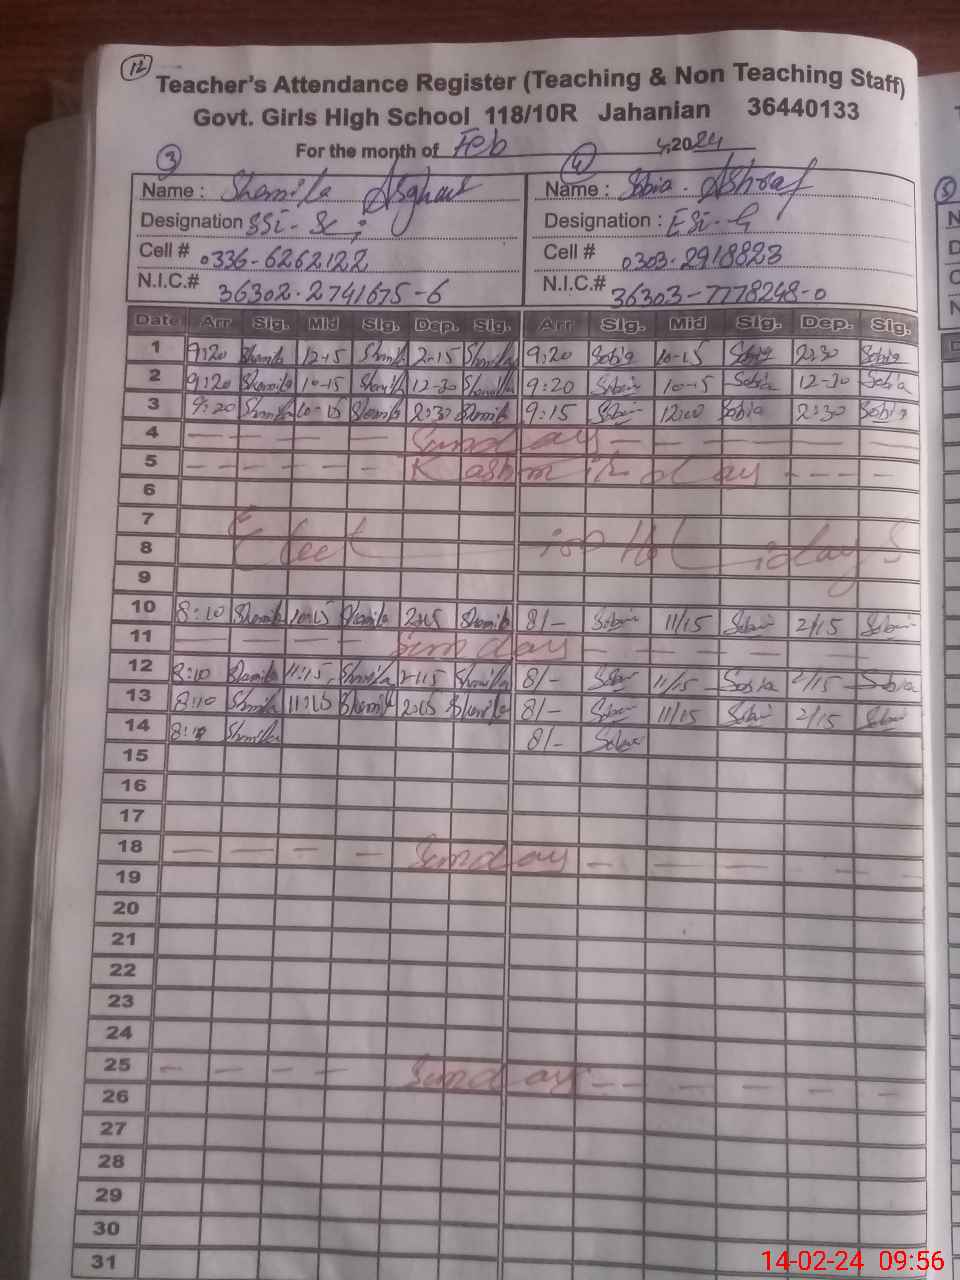 12
Teacher's Attendance Register (Teaching & Non Teaching Staff)
Govt. Girls High School 118/10R Jahanian 36440133
For the month of Feb 2024
3 4
Name : Shamila Asghar Name : Sobia Ashraf
Designation SSI-Sc; Designation : ESI-G
Cell # 0336-6262122 Cell # 0303-2918823
N.I.C.# 36302-2741675-6 N.I.C.# 36303-7778248-0
Date Arr Sig. Mid Sig. Dep. Sig. Arr Sig. Mid Sig. Dep. Sig.
1 9:20 Shamila 12-15 Shamila 2-15 Shamila 9:20 Sobia 10-15 Sobia 2:30 Sobia
2 9:20 Shamila 10-15 Shamila 12-30 Shamila 9:20 Sobia 10-15 Sobia 12-30 Sobia
3 9:20 Shamila 10-15 Shamila 2:30 Shamila 9:15 Sobia 12:00 Sobia 2:30 Sobia
4 Sunday
5 Kashmir day
6
7
Election Holidays
8
9
10 8:10 Shamila 10:15 Shamila 2:15 Shamila 8/- Sobia 11/15 Sobia 2/15 Sobia
11 Sunday
12 8:10 Shamila 11:15 Shamila 2:15 Shamila 8/- Sobia 11/15 Sobia 2/15 Sobia
13 8:10 Shamila 11:15 Shamila 2:15 Shamila 8/- Sobia 11/15 Sobia 2/15 Sobia
14 Shamila 8/- Sobia
15
16
17
18 Sunday
19
20
21
22
23
24
25 Sunday
26
27
28
29
30
31
14-02-24 09:56